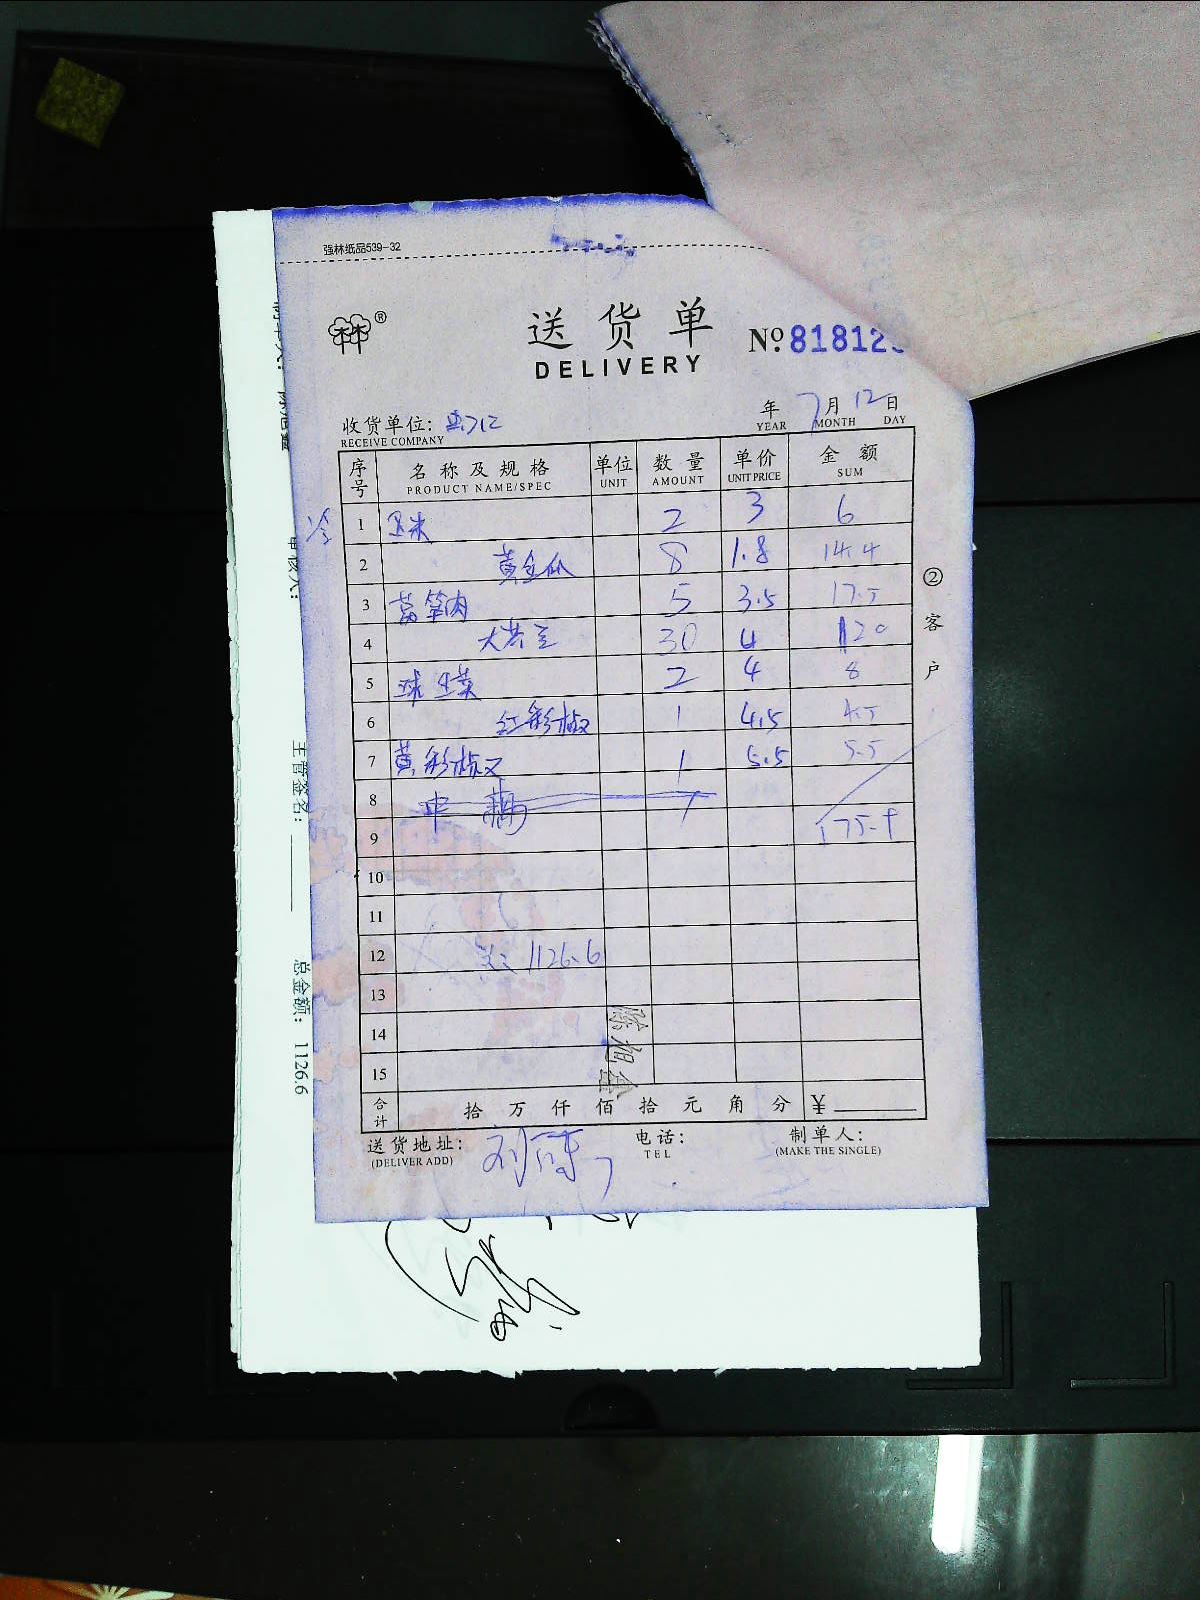 强林纸品539-32
林林®
送货单
DELIVERY
№ 81812
年 7月 12日
YEAR MONTH DAY
收货单位:
RECEIVE COMPANY
序号 名称及规格 单位 数量 单价 金额
PRODUCT NAME/SPEC UNIT AMOUNT UNIT PRICE SUM
冷 1 玉米 2 3 6
2 黄金瓜 8 1.8 14.4
3 莴笋肉 5 3.5 17.5
4 大芸豆 30 4 120
5 球生菜 2 4 8
6 红彩椒 1 4.5 4.5
7 黄彩椒 1 5.5 5.5
8 1
9 175.9
10
11
12 1126.6
13
14
15
合计 拾万仟佰拾元角分 ¥
送货地址: 电话: 制单人:
(DELIVER ADD) TEL (MAKE THE SINGLE)
②客户
主管签名:
总金额: 1126.6